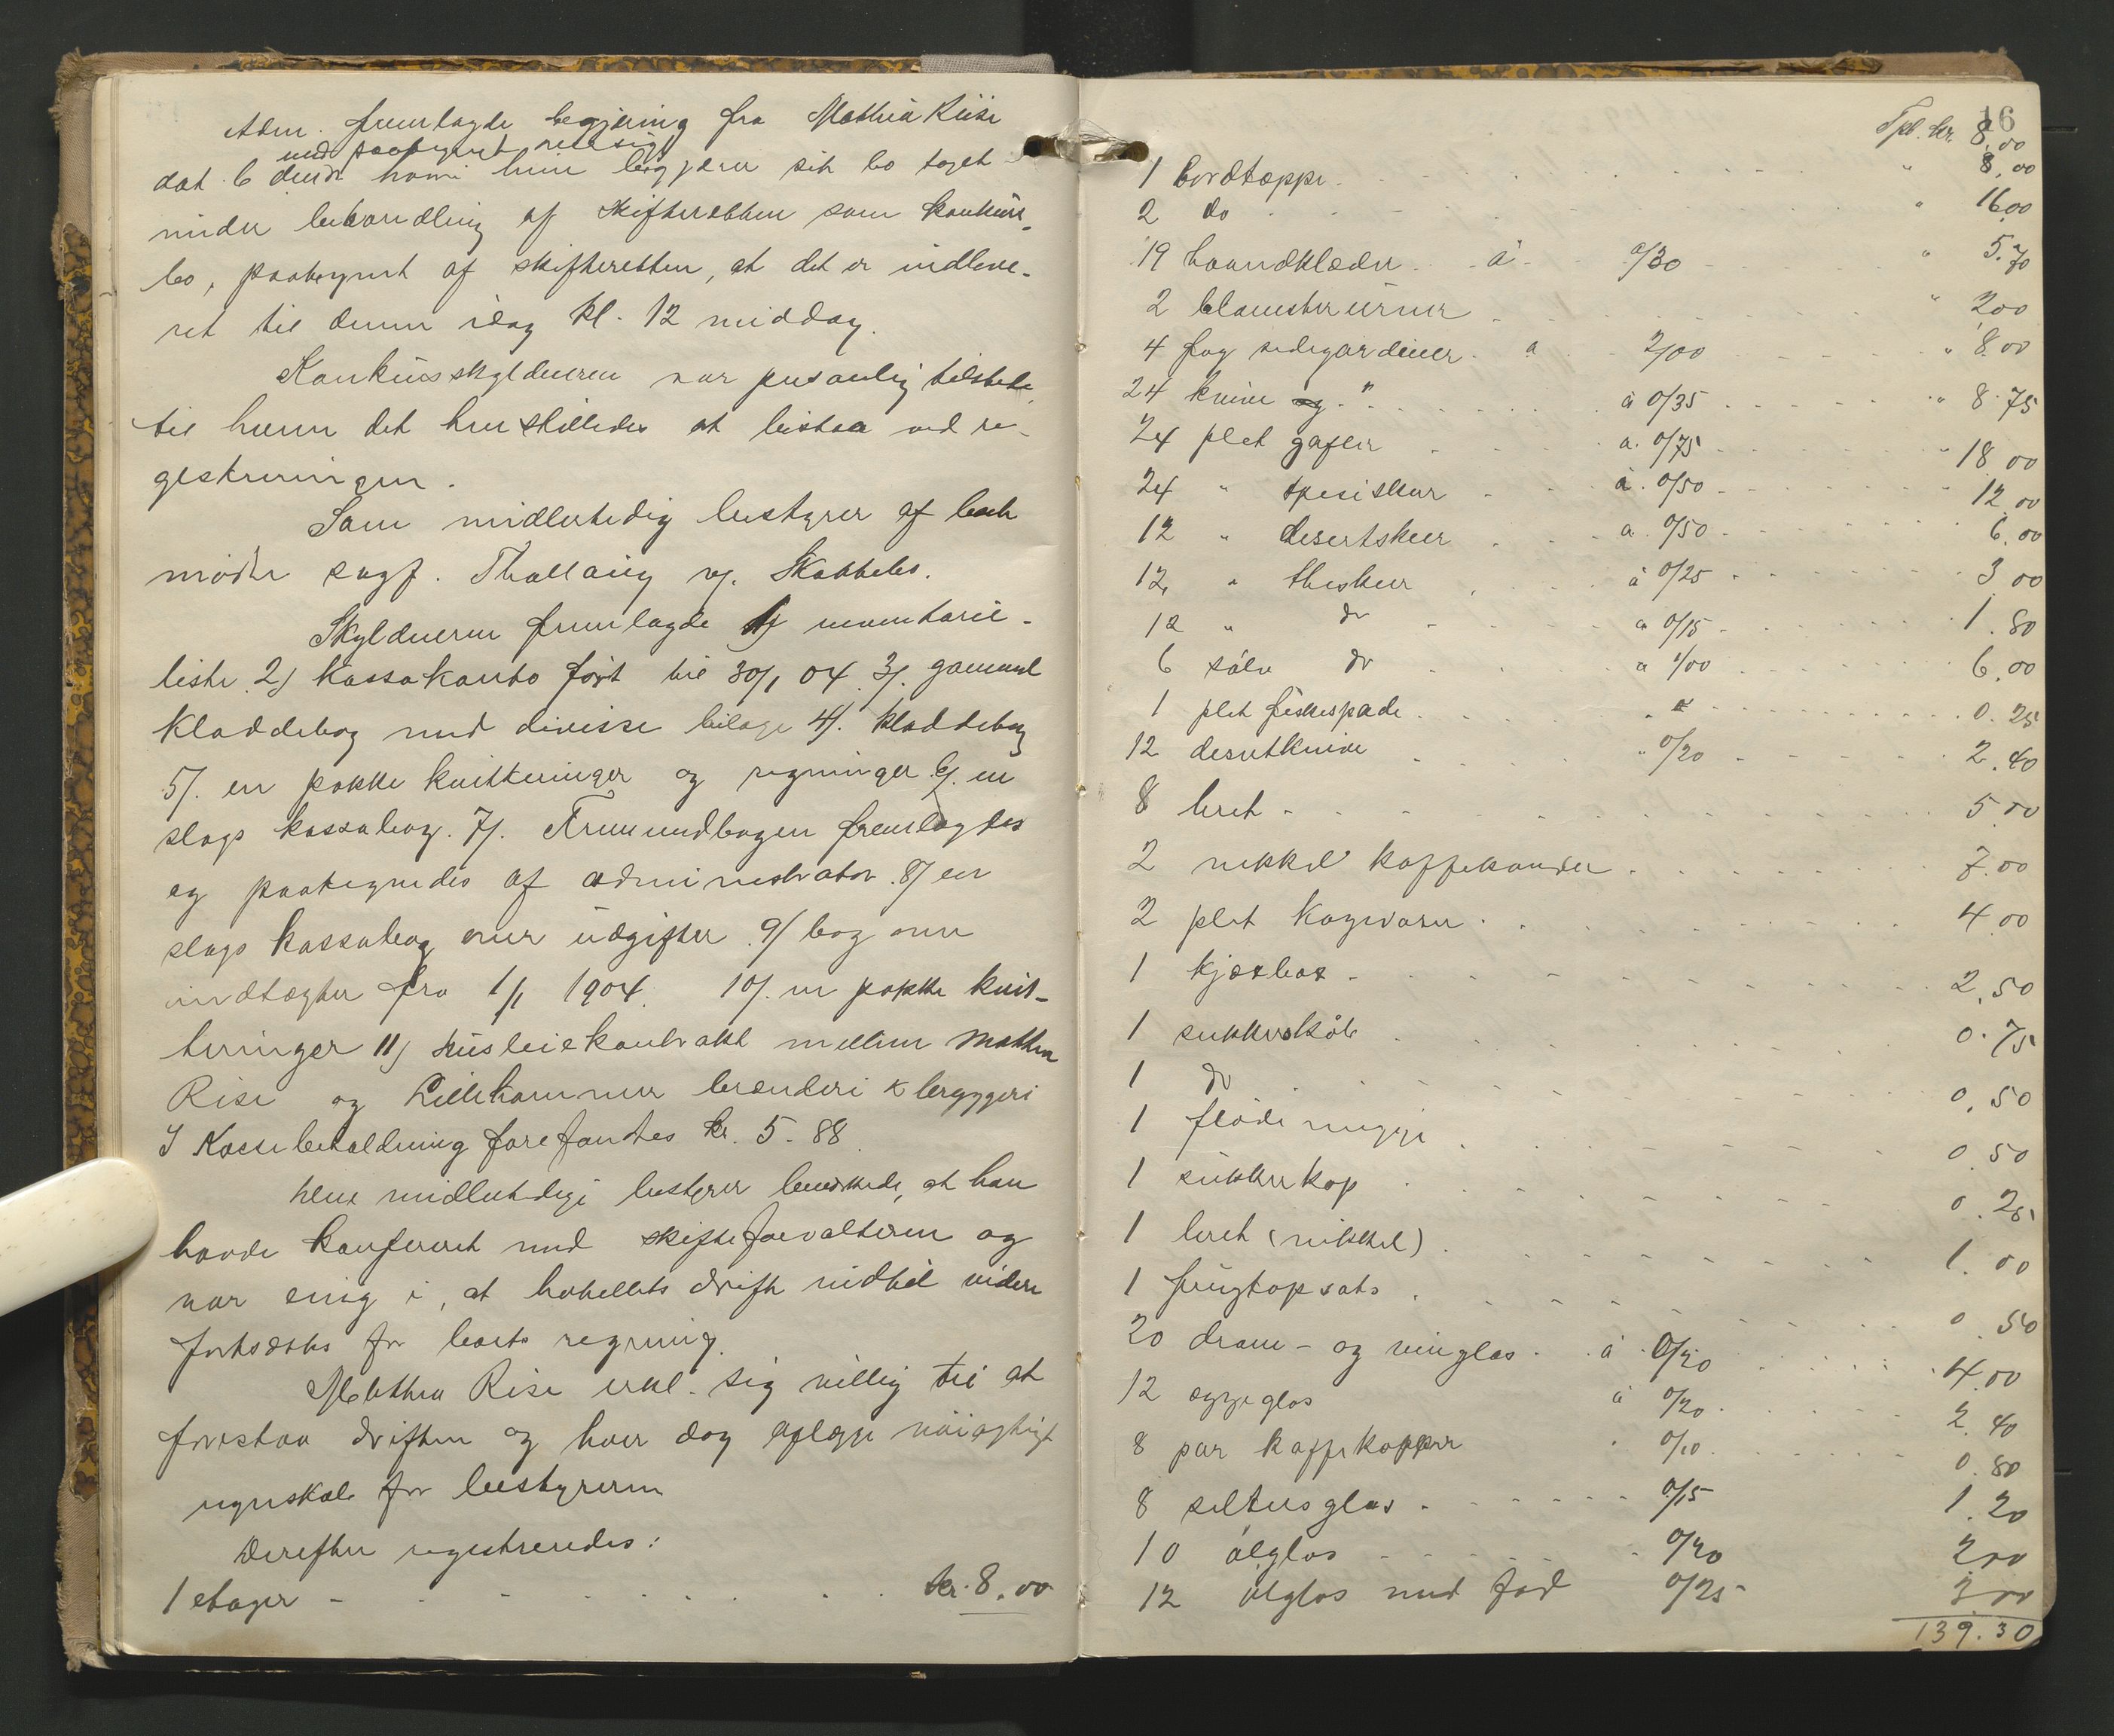 Adm. fremlagde begjæring fra Mathea Riise
med paategnet
dat. 6 dennes hvori hun begjærer sit bo taget
under behandling af skifteretten som konkurs-
bo, paategnet af skifteretten, at det er indleve-
ret til denne idag kl. 12 middag.
Konkursskyldneren var personlig tilstede
til hvem det henstilledes at bistaa ved re-
gistreringen.
Som midlertidig bestyrer af boet
mødte sagf. Thallaug og Skabbebo.
Skyldneren fremlagde 1/ inventarie-
liste 2/ Kassakonto ført til 30/1 04. 3/. gammel
Kladdebog med diverse bilage 4/. Kladdebog
5/. en pakke kvitteringer og regninger 6/. en
slags kassabog. 7/. Fremmedbogen fremlagdes
og paategnedes af administrator. 8/ en
slags kassabog over udgifter. 9/ bog over
indtægter fra 1/1 1904. 10/. en pakke kvit-
teringer 11/ Husleiekontrakt mellem Mathea
Rise og Lillehammer brænderi & bryggeri
I Kassebeholdning forefandtes kr. 5.88.
Den midlertidige bestyrer bemærkede, at han
havde konfereret med skifteforvalteren og
var enig i, at hotellets drift indtil videre
fortsættes for boets regning.
Mathea Rise erkl. sig villig til at
forestaa driften og hver dag aflægge nøiagtigt
regnskab for bestyreren
Derefter registreredes:
1 etager - - - - kr. 8.00
16
Tpt. kr. 8.00
1 bordtæppe - - - " 8.00
2 do - - - " 16.00
19 haandklæder à 0/30 - - - " 5.70
2 blomsterurner - - - " 2.00
4 fag sidegardiner à 2/00 - - - " 8.00
24 knive og " à 0/35 - - - " 8.75
24 plet gafler à 0/75 - - - " 18.00
24 " spiseskeer à 0/50 - - - 12.00
12 " desertskeer à 0/50 - - - 6.00
12 " theskeer à 0/25 - - - 3.00
12 " do à 0/15 - - - 1.80
6 sølv do à 1/00 - - - 6.00
1 plet fiskespade - - - 0.25
12 desertknive " 0/20 - - - 2.40
8 bret - - - 5.00
2 nikkel kaffekander - - - 7.00
2 plet Kagevaser - - - 4.00
1 kjæxbox - - - 2.50
1 sukkerskål - - - 0.75
1 do - - - 0.50
1 flødemugge - - - 0.50
1 sukkerkop - - - 0.25
1 bret (nikkel) - - - 1.00
1 frugtopsats - - - 0.50
20 dram- og vinglas à 0/20 - - - 4.00
12 æggeglas à 0/20 - - - 2.40
8 par kaffekopper " 0/10 - - - 0.80
8 seltersglas - - - 0/15 1.20
10 ølglas - - - 0/20 2.00
12 ølglas med fod 0/25 3.00
139.30